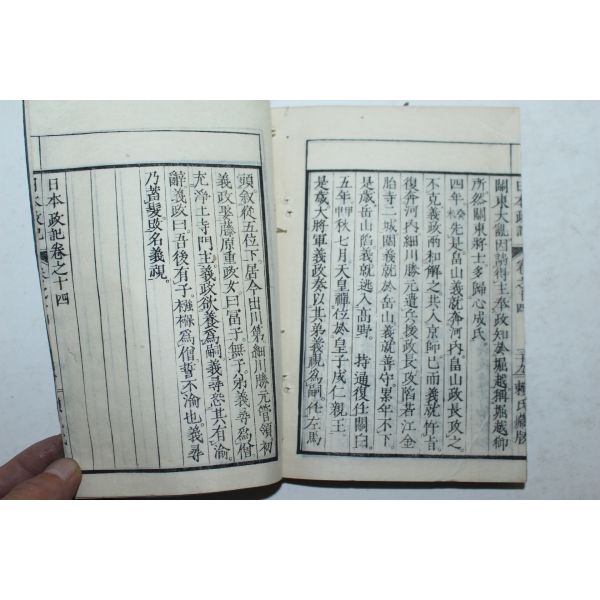 關東大亂因請得主奉政知於堀越稱堀越御
所然關東將士多歸心成氏
四年癸未先是畠山義就奔河内畠山政長攻之
不克義政兩和解之共入京師已而義就忤旨
復奔河内細川勝元遣兵援政長攻陷若江金
胎寺二城圍義就於岳山義就善守累年不下
是歲岳山陷義就逃入高野 持通復任關白
五年甲申秋七月天皇禪位於皇子成仁親王
是歲大將軍義政奏以其弟義視爲嗣任左馬
日本政記 卷之十四 賴氏藏版
頭敘從五位下居今出川第細川勝元管領初
義政娶藤原重政女曰富子無子弟義尋爲僧
充淨土寺門主義政欲養爲嗣義尋恐其有渝
辭義政曰吾後有子襁褓爲僧誓不渝也義尋
乃蓄髮改名義視
日本政記卷之十四